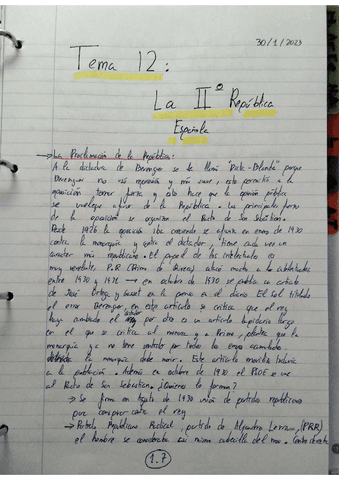 30/1/2023
Tema 12:
La IIº República
Española
→ La Proclamación de la República:
A la dictadura de Berenguer se le llamó "Dicta-Blanda" porque
Berenguer no era represión y más suave, esto permitió a la
oposición tomar fuerza y esto hace que la opinión pública
se vuelque a favor de la República. Las principales fuerzas
de la oposición se organizan el Pacto de San Sebastián.
Desde 1926 la oposición iba creciendo se afianza en enero de 1930
contra la monarquía y contra el dictador, tiene cada vez un
carácter más republicano. El papel de los intelectuales es
muy relevante, P.R (Primo de Rivera) atacó mucho a los
entre 1930 y 1931 → en octubre de 1930 se publica un artículo
de José Ortega y Gasset en la prensa en el diario El Sol titulado
el error Berenguer, en este artículo se critica que el rey
haya cambiado el por otro es un artículo lapidario largo
en el que se critica al monarca y a Primo, plantea que la
monarquía ya no tiene sentido por todos los errores acumulados
la monarquía debe morir. Este artículo moviliza todavía
a la población. Además en octubre de 1930 el PSOE se une
al Pacto de San Sebastián. ¿Quienes lo forman?
→ Se firma en Agosto de 1930 unión de partidos republicanos
para conspirar contra el rey
→ Partido Republicano Radical, partido de Alejandro Lerroux, (PRR)
el hombre se consideraba así mismo cabecilla del mov. Centro derecha
1.7